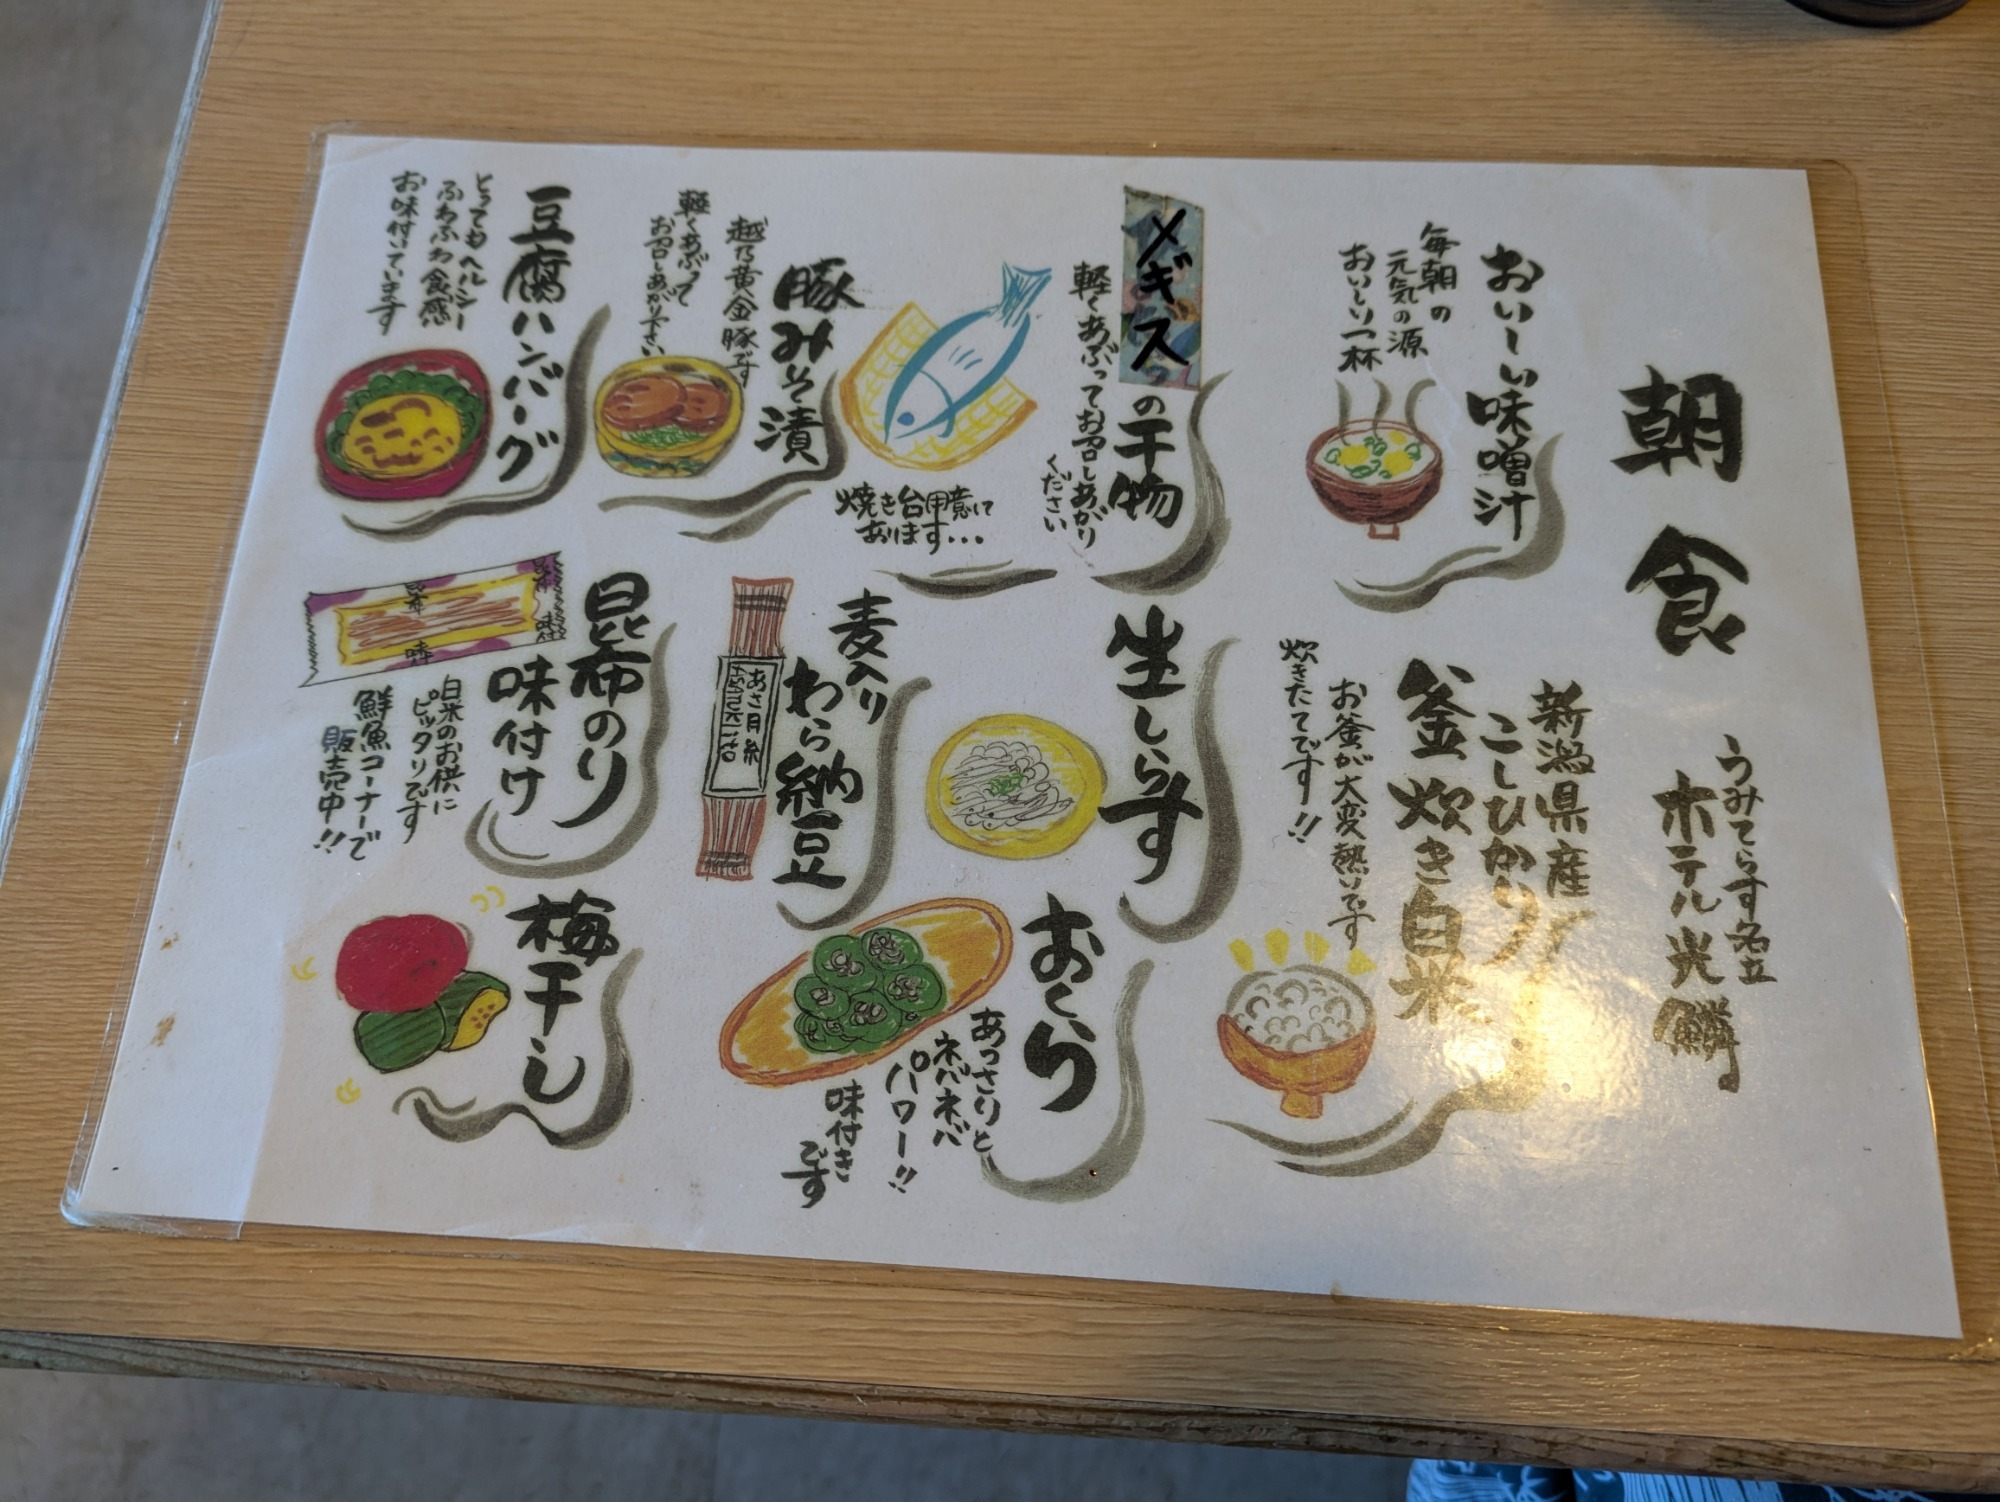 朝食
うみてらす名立
ホテル光鱗
おいしい味噌汁
毎朝の
元気の源
おいしい一杯
新潟県産
こしひかり
釜炊き白米
お釜が大変熱いです
炊きたてです!!
メギス
の干物
軽くあぶってお召しあがり
ください
焼き台用意して
あります・・・
生しらす
おくら
あっさりと
ネバネバ
パワー!!
味付き
です
豚みそ漬
越乃黄金豚です
軽くあぶって
お召しあがり下さい
麦入り
わら納豆
あさ月糸
豆腐ハンバーグ
とってもヘルシー
ふわふわ食感
お味付いています
昆布のり
味付け
昆布
味付
昆布
味付
白米のお供に
ピッタリです
鮮魚コーナーで
販売中!!
梅干し